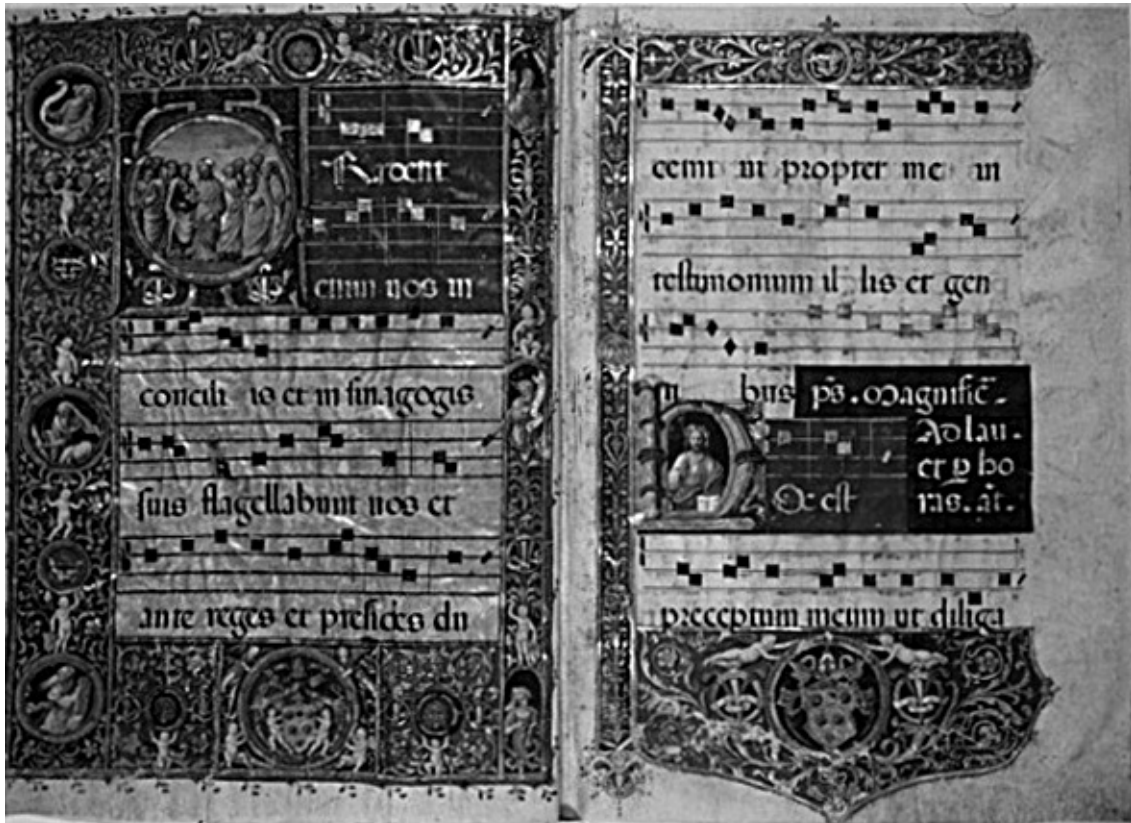 TRadent
enim vos in
concili is et in sinagogis
suis flagellabunt vos et
ante reges et presides du
cemi ni propter me in
testimonium il lis et gen
ti bus p̄s. Magnific̄.
Ad lau.
et ꝑ ho
HOc est ras. an̄.
preceptum meum ut diliga